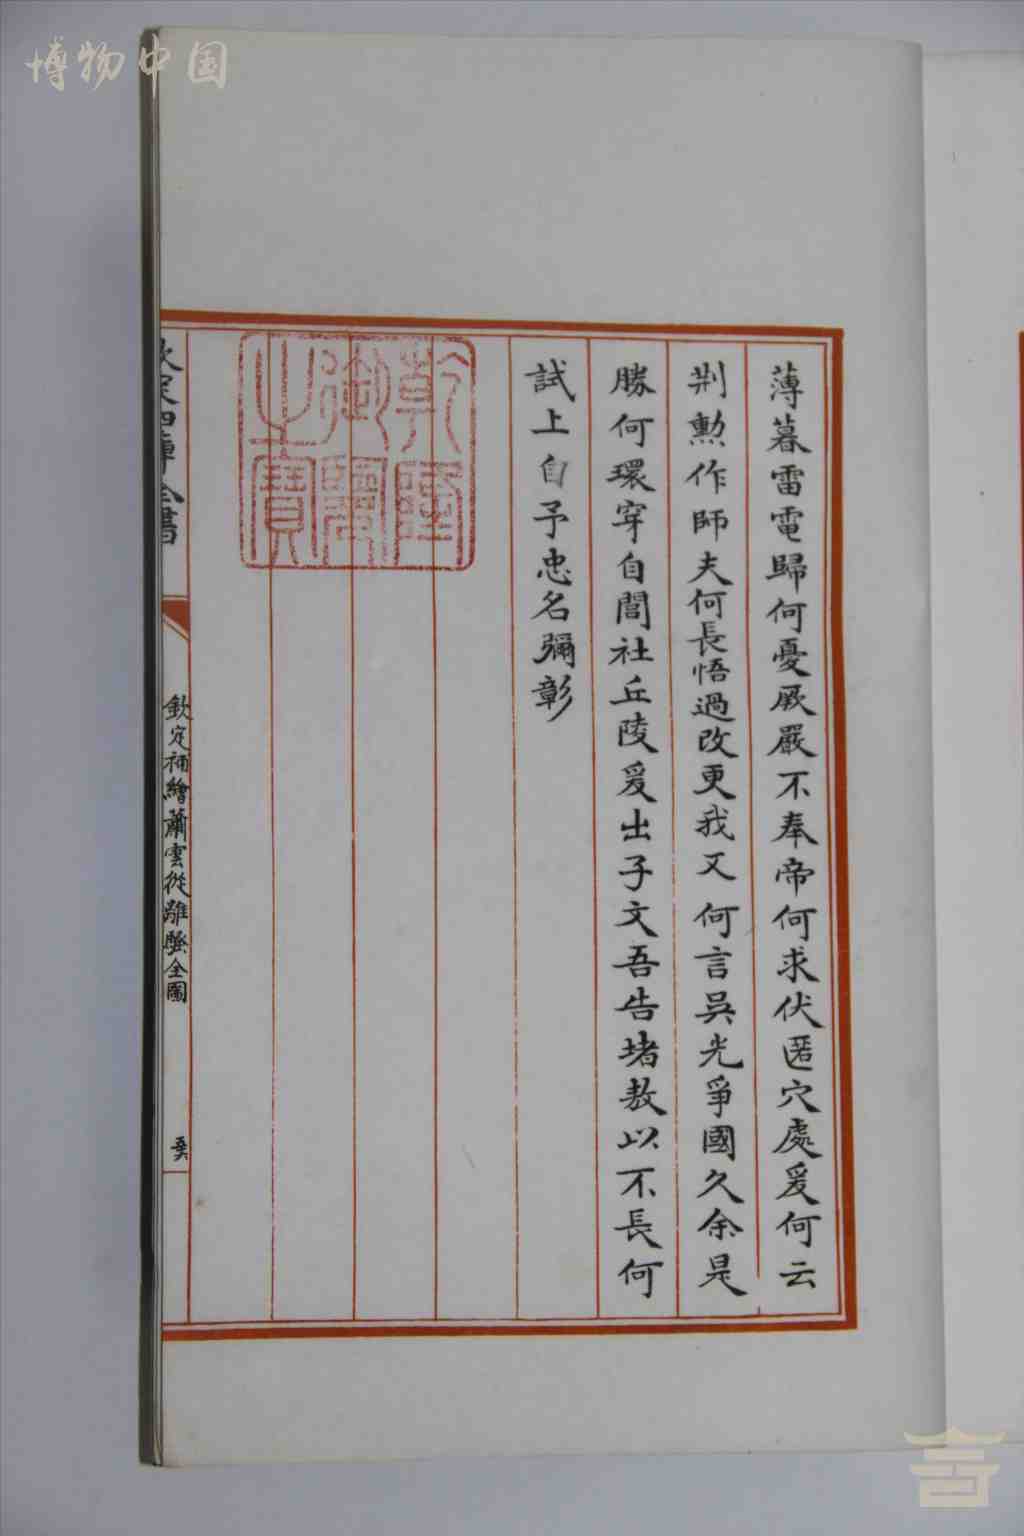 博物中国
薄暮雷電歸何憂厥嚴不奉帝何求伏匿穴處爰何云
荆勳作師夫何長悟過改更我又何言吳光爭國久余是
勝何環穿自閭社丘陵爰出子文吾告堵敖以不長何
試上自予忠名彌彰
乾隆御覽之寶
欽定四庫全書
欽定補繪蕭雲從離騷全圖